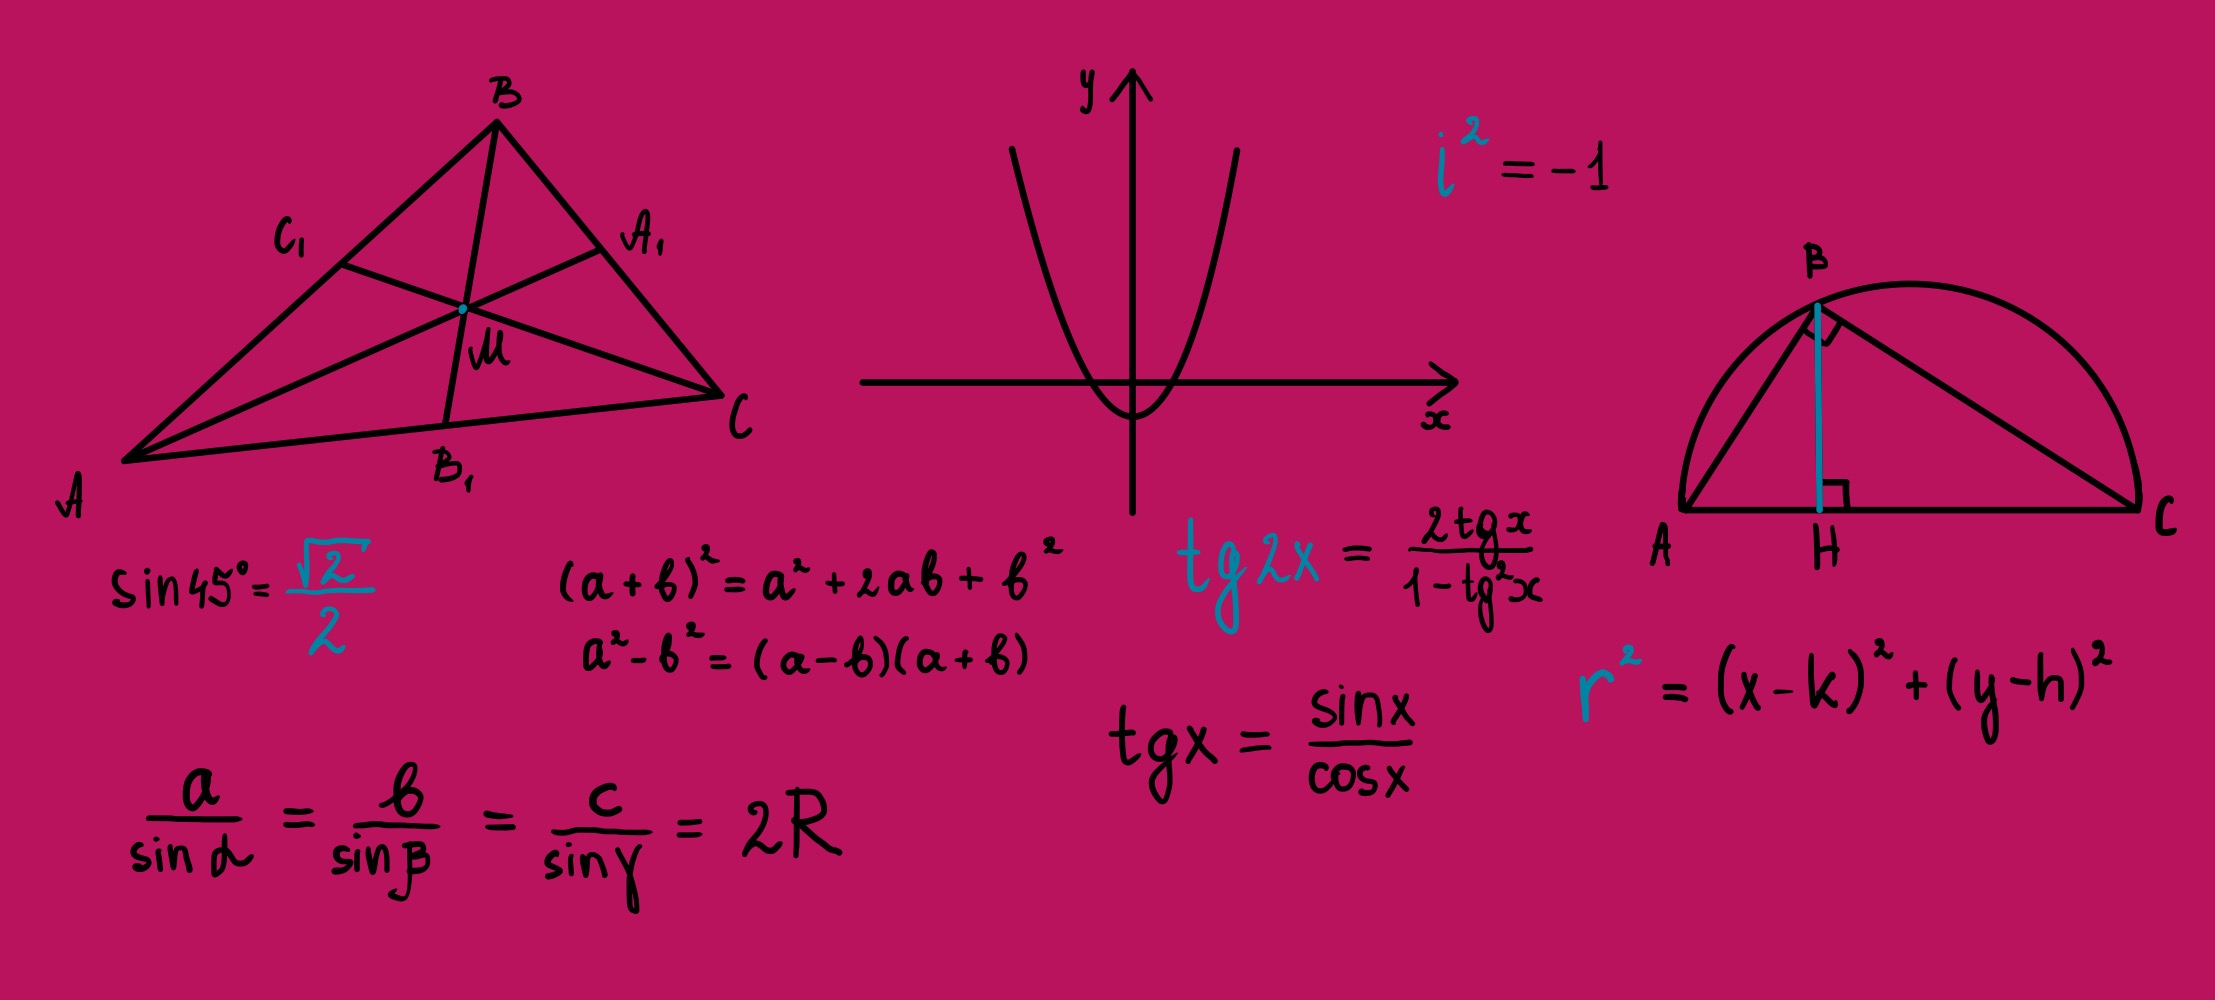 B
C₁
A₁
M
C
B₁
A
y
x
i² = -1
B
A
H
C
sin45° = √2/2
(a + b)² = a² + 2ab + b²
a² - b² = (a - b)(a + b)
tg2x = 2tgx/1 - tg²x
r² = (x - k)² + (y - h)²
tgx = sinx/cosx
a/sin α = b/sin β = c/sin γ = 2R